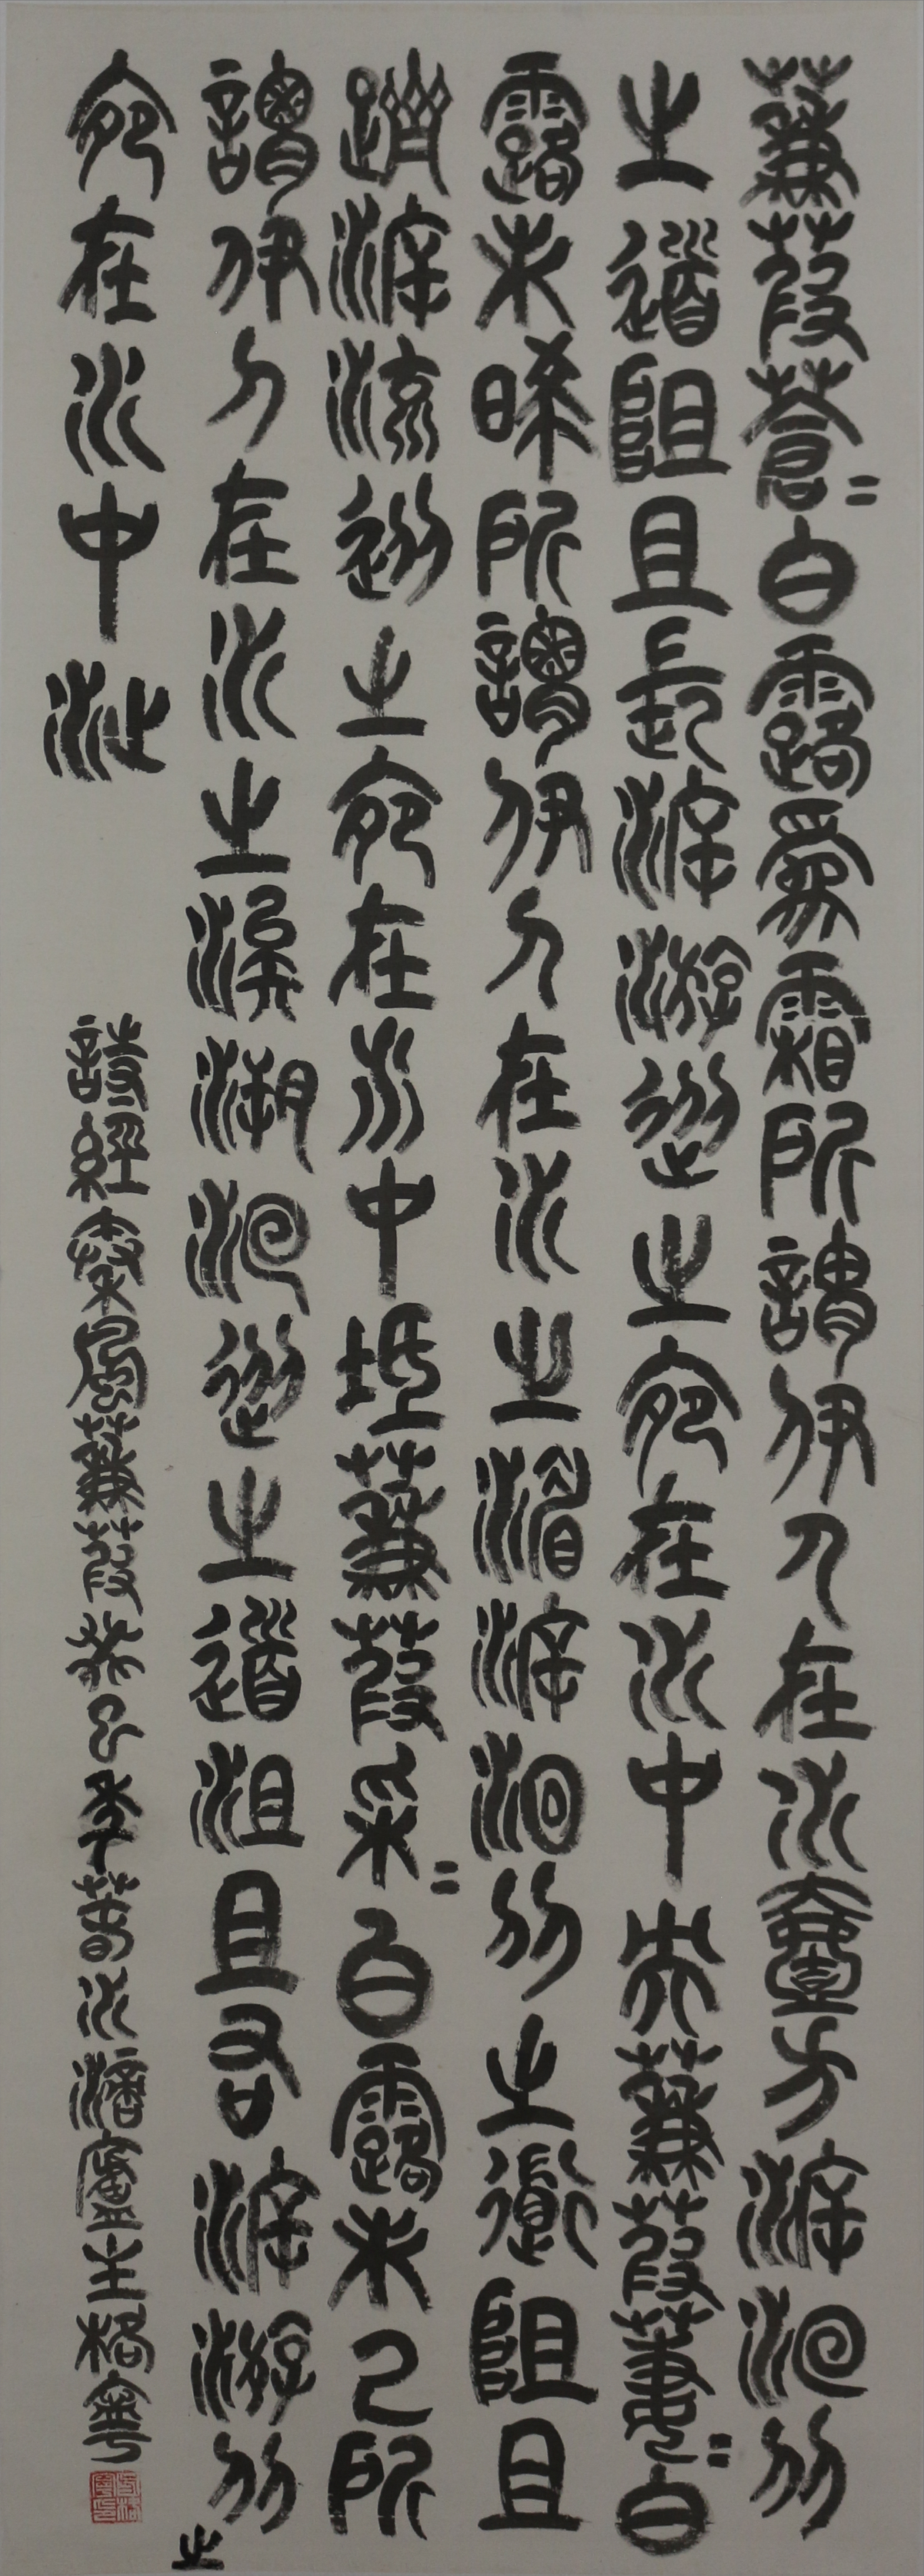 蒹葭蒼=白露爲霜所謂伊人在水壹方泝洄从
之道阻且長泝游從之宛在水中央蒹葭萋=白
露未晞所謂伊人在水之湄泝洄从之道阻且
躋泝流從之宛在水中坻蒹葭采=白露未已所
謂伊人在水之涘溯洄從之道沮且右泝游从之
宛在水中沚
詩經秦風蒹葭癸巳年春水廬主